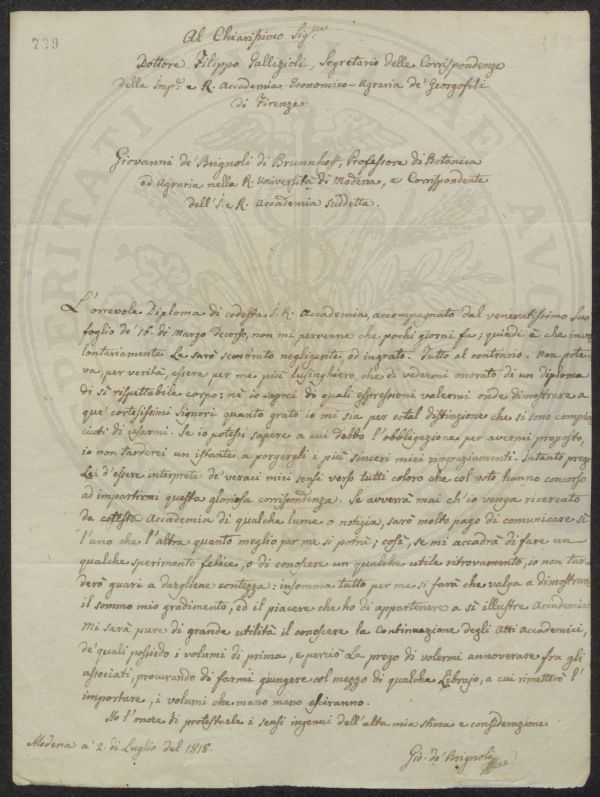 739
Al Chiarissimo Sig.re
Dottore Filippo Gallizioli, Segretario delle Corrispondenze
della Imp.e e R. Accademia Economico-Agraria de' Georgofili
di Firenze.
Giovanni de' Brignoli di Brunnhoff, Professore di Botanica
ed Agraria nella R. Università di Modena, e Corrispondente
dell'I. e R. Accademia suddetta.
L'orrevole Diploma di codesta I. R. Accademia, accompagnato dal veneratissimo suo
foglio de' 16. di Marzo decorso, non mi pervenne che pochi giorni fa; quindi è che invo
lontariamente Le sarò sembrato negligente, od ingrato. Tutto al contrario. Non pote
va, per verità, essere per me più lusinghiero, che di vedermi onorato di un diploma
di sì rispettabile corpo: nè io saprei di quali espressioni valermi onde dimostrare a
que' cortesissimi Signori quanto grato io mi sia per cotal distinzione che si sono compia
ciuti di usarmi. Se io potessi sapere a cui debbo l'obbligazione per avermi proposto,
io non tarderei un istante a porgergli i più sinceri miei ringraziamenti. Intanto prego
Lei d'essere interprete de' veraci miei sensi verso tutti coloro che col voto hanno concorso
ad impartirmi questa gloriosa corrispondenza. Se avverrà mai ch'io venga ricercato
da cotesta Accademia di qualche lume o notizia, sarò molto pago di comunicare sì
l'uno che l'altra quanto meglio per me si potrà; così, se mi accadrà di fare un
qualche sperimento felice, o di conoscere un qualche utile ritrovamento, io non tar
derò guari a dargliene contezza: insomma tutto per me si farà che valga a dimostrare
il sommo mio gradimento, ed il piacere che ho di appartenere a sì illustre Accademia.
Mi sarà pure di grande utilità il conoscere la continuazione degli Atti Accademici,
de' quali possiedo i volumi di prima, e perciò La prego di volermi annoverare fra gli
associati, procurando di farmi giungere col mezzo di qualche Librajo, a cui rimetterò l'
importare, i volumi che mano mano esciranno.
Ho l'onore di protestarle i sensi ingenui dell'alta mia stima e considerazione
Modena a' 2. di Luglio del 1818.
Gio. de' Brignoli